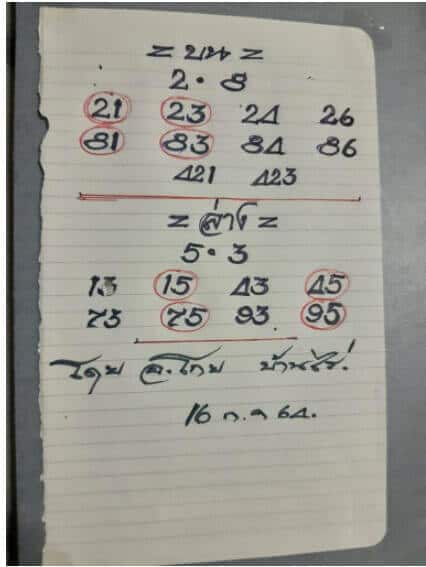 = บน =
2 • 8
21 23 24 26
81 83 84 86
421 423
= ล่าง =
5 • 3
13 15 43 45
73 75 93 95
โดย อ.โกย บ้านไร่.
16 ก.ค 64.